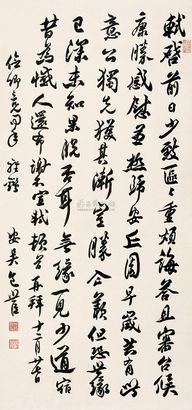 軾啓前日少區區重煩誨答且審台候
康勝感慰兼極歸安丘園早歲共有此
意公獨先獲其漸豈勝企羨但恐世緣
已深未知果脫否耳無緣一見少道宿
昔為憾人還布謝不宣軾頓首再拜十二月廿日
卿同年
安吳包世臣